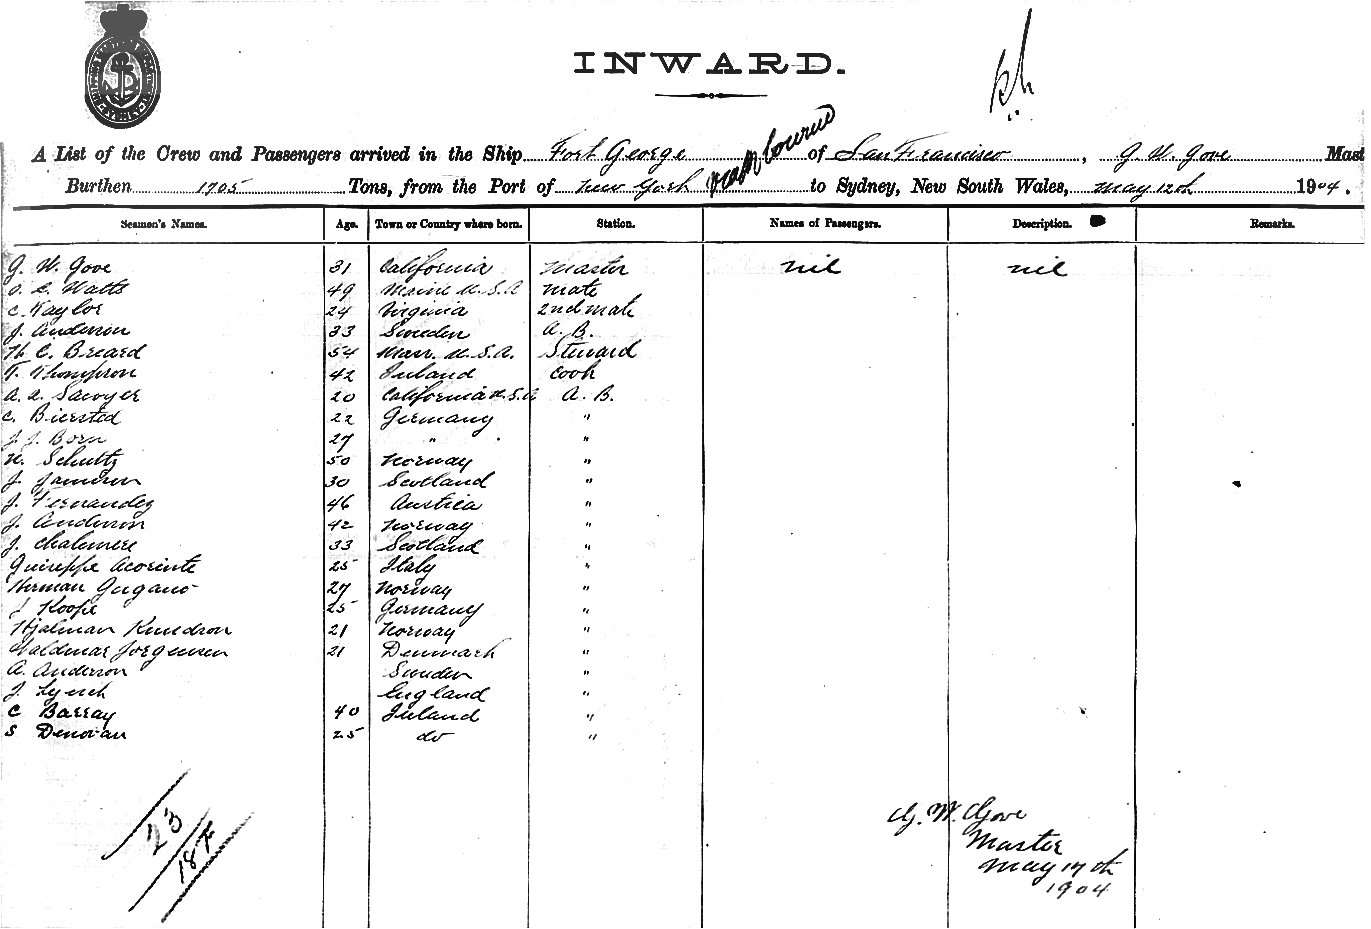 INWARD.
A List of the Crew and Passengers arrived in the Ship Fort George of San Francisco, G. W. Gove Mast
Burthen 1705 Tons, from the Port of New York to Sydney, New South Wales, May 12th 1904.
Seamen's Names. Age. Town or Country where born. Station. Names of Passengers. Description. Remarks.
G. W. Gove 31 California Master nil nil
C. Watts 49 Maine U.S.A Mate
C. Naylor 24 Virginia 2nd mate
J. Anderson 33 Sweden A. B.
C. Breard 54 Mass. U.S.A. Steward
Thompson 42 Ireland Cook
A. A. Sawyer 20 California U.S.A A. B.
C. Biersted 22 Germany "
J. J. Born 27 " "
N. Schultz 50 Norway "
J. Jamieson 30 Scotland "
J. Fernandez 46 Austria "
J. Anderson 42 Norway "
J. Chalmers 33 Scotland "
Guiseppe Acorinte 25 Italy "
Herman 27 Norway "
J Koope 25 Germany "
Hjalmar Knudson 21 Norway "
Waldemar Jorgensen 21 Denmark "
A. Anderson Sweden "
J. Lynch England "
C Barray 40 Ireland "
S Denovan 25 do "
23
187
G. W. Gove
Master
May 17th
1904